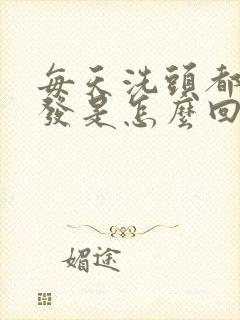 每天洗頭都
發是怎麼回
媚途